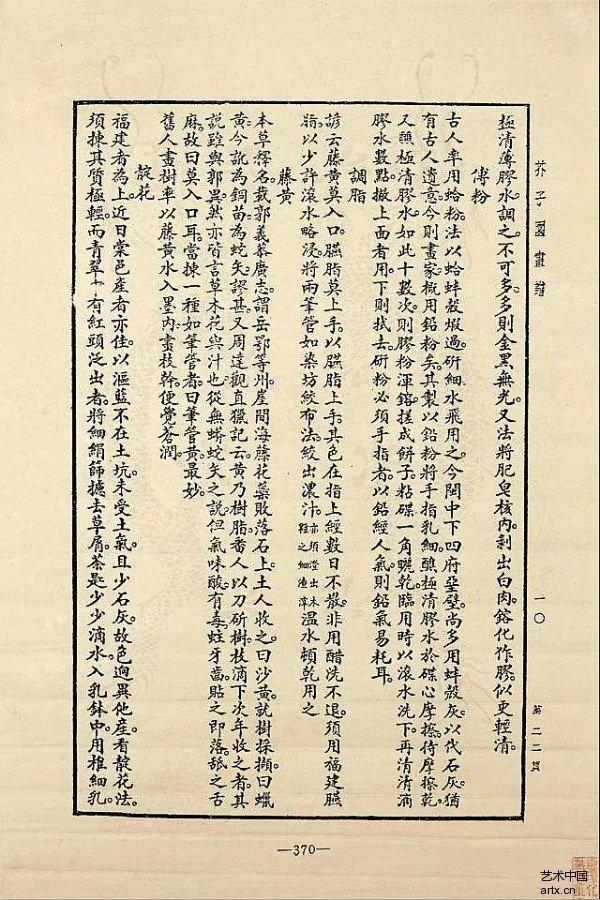 芥子園畫譜
一〇
第二二頁
極清薄膠水調之。不可多多則金黑無光。又法將肥皂核內剝出白肉。鎔化作膠。似更輕清。
傅粉
古人率用蛤粉。法以蛤蚌殼煅過。硏細水飛用之。今閩中下四府堊壁。尚多用蚌殼灰。以代石灰。猶
有古人遺意。今則畫家槪用鉛粉矣。其製以鉛粉將手指乳細。蘸極清膠水於碟心摩擦。待摩擦乾。
又蘸極清膠水。如此十數次。則膠粉渾鎔。搓成餅子。粘碟一角曬乾。臨用時以滾水洗下。再清清滴
膠水數點。撇上面者用。下則拭去。研粉必須手指者。以鉛經人氣則鉛氣易耗耳。
調脂
諺云藤黃莫入口。臙脂莫上手。以臙脂上手。其色在指上經數日不散。非用醋洗不退。須用福建臙
脂。以少許滾水略浸。將兩筆管如染坊絞布法。絞出濃汁。亦須澄出木棉之細渣滓溫水頓乾用之
藤黃
本草釋名。載郭義恭廣志。謂岳鄂等州崖間海藤花蘂敗落石上。土人收之。曰沙黃。就樹採擷。曰蠟
黃。今訛為銅。苗為蛇矢。謬甚。又周達觀直獵記云。黃乃樹脂。番人以刀斫樹枝滴下。次年收之者。其
說雖與郭異。然亦皆言草木花與汁也。從無蟒蛇矢之說。但氣味酸有毒。蛀牙齒貼之即落。舐之舌
麻。故曰莫入口耳。當揀一種如筆管者。曰筆管黃。最妙。
舊人畫樹。率以藤黃水入墨內。畫枝幹。便覺蒼潤。
靛花
福建者為上。近日棠邑產者亦佳。以漚藍不在土坑。未受土氣。且少石灰。故色迥異他產。看靛花法。
須揀其質極輕。而青翠中有紅頭泛出者。將細絹篩摝去草屑。茶匙少少滴水入乳鉢中。用椎細乳。
—370—
艺术中国
artx.cn